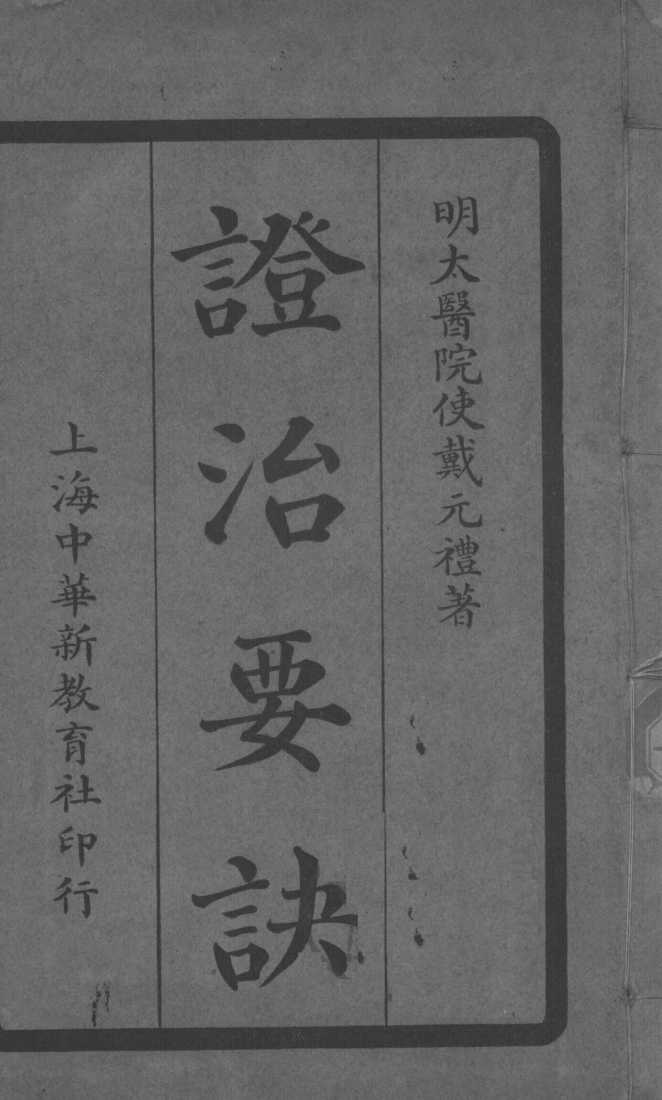 明太醫院使戴元禮著
證治要訣
上海中華新教育社印行